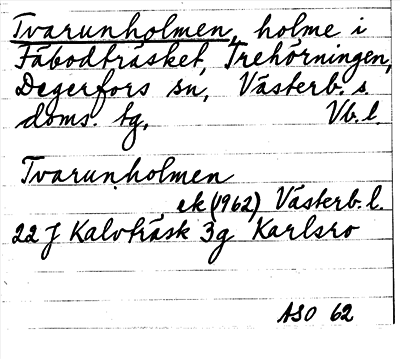 Tvarunholmen, holme i
Fäbodträsket, Trehörningen,
Degerfors sn, Västerb. s.
doms. tg, Vb. l.
Tvarunholmen
ek (1962) Västerb. l.
22 J Kalvträsk 3g Karlsro
ASO 62